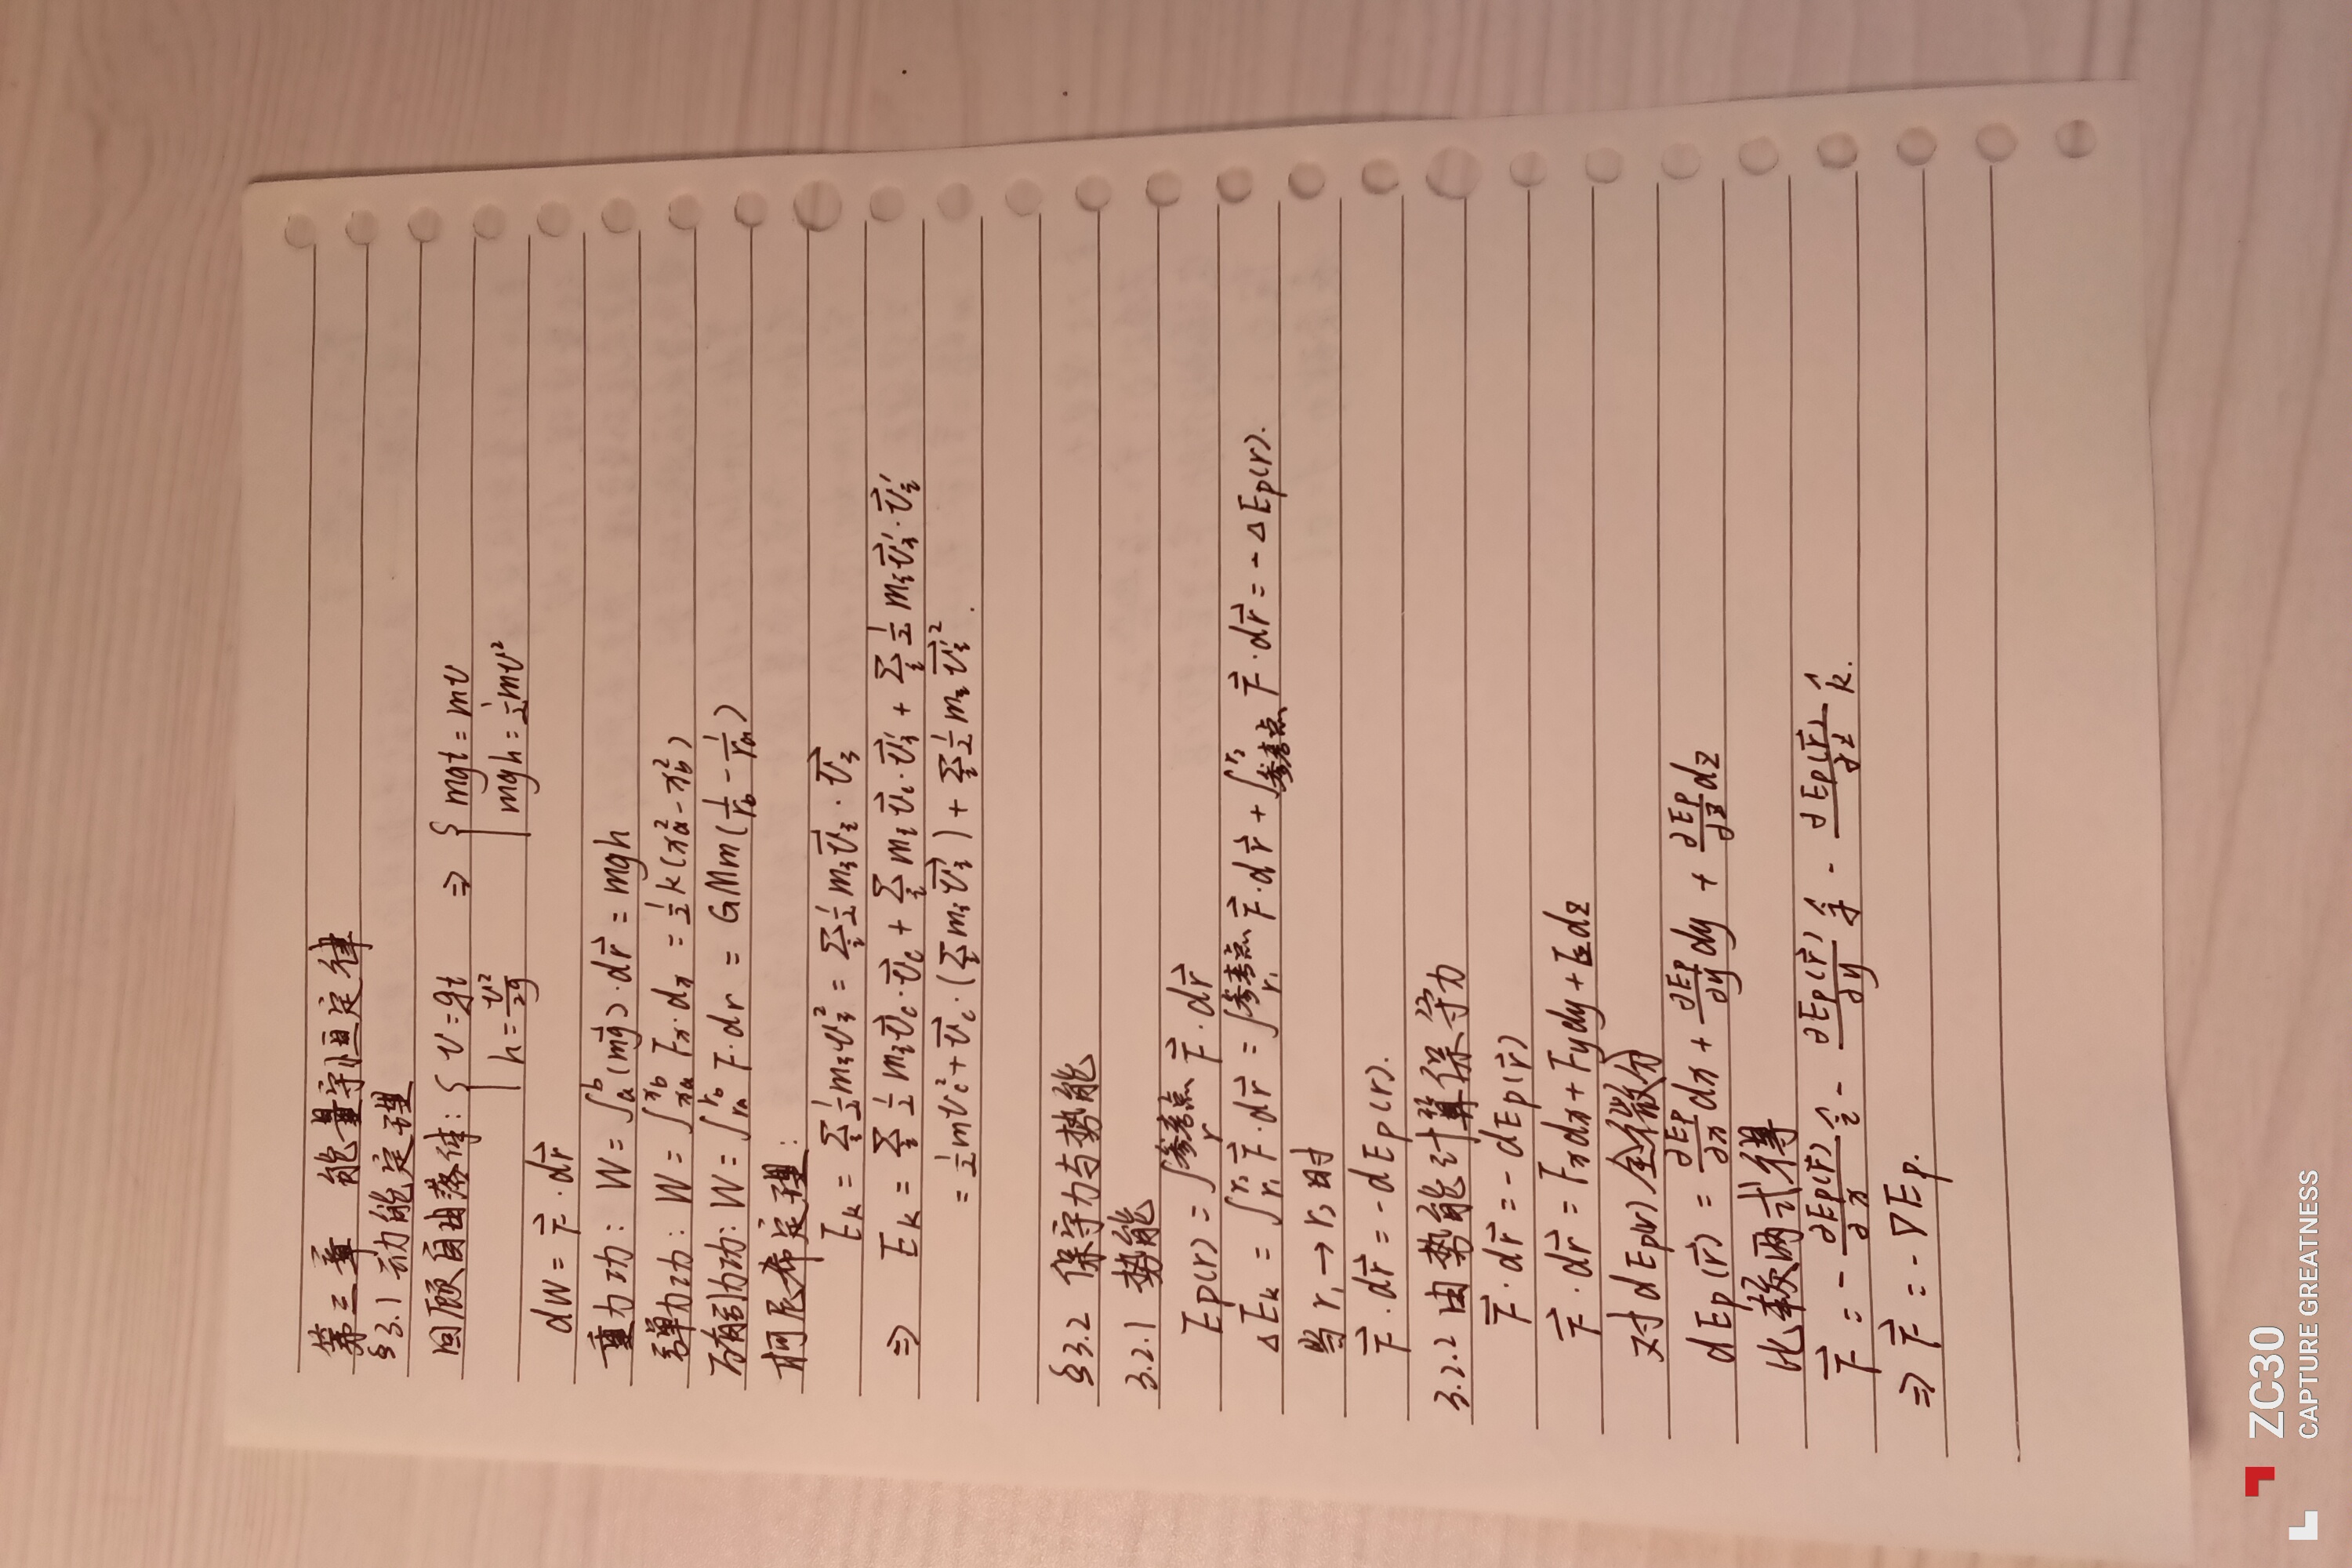 第三章 能量守恒定律
§3.1 动能定理
回顾自由落体: { v=gt ⇒ { mgt = mv
h = v²/2g mgh = ½mv²
dW = F⃗·dr⃗
重力功: W = ∫ₐᵇ(mg⃗)·dr⃗ = mgh
弹力功: W = ∫_{xa}^{xb} Fx·dx = ½k(xa² - xb²)
万有引力功: W = ∫_{ra}^{rb} F·dr = GMm(1/rb - 1/ra)
柯尼希定理:
Ek = Σᵢ ½mᵢvᵢ² = Σᵢ ½mᵢv⃗ᵢ·v⃗ᵢ
⇒ Ek = Σᵢ ½ mᵢv⃗c·v⃗c + Σᵢ mᵢv⃗c·v⃗ᵢ' + Σᵢ ½ mᵢv⃗ᵢ'·v⃗ᵢ'
= ½mvc² + v⃗c·(Σᵢ mᵢv⃗ᵢ) + Σᵢ ½ mᵢv⃗ᵢ'².
§3.2 保守力与势能
3.2.1 势能
Ep(r) = ∫_r^{参考点} F⃗·dr⃗
ΔEk = ∫_{r₁}^{r₂} F⃗·dr⃗ = ∫_{r₁}^{参考点} F⃗·dr⃗ + ∫_{参考点}^{r₂} F⃗·dr⃗ = -ΔEp(r).
当r₁→r₂时
F⃗·dr⃗ = -dEp(r).
3.2.2 由势能计算保守力
F⃗·dr⃗ = -dEp(r⃗)
F⃗·dr⃗ = Fxdx + Fydy + Fzdz
对dEp(r)全微分
dEp(r⃗) = ∂Ep/∂x dx + ∂Ep/∂y dy + ∂Ep/∂z dz
比较两式得
F⃗ = - ∂Ep(r⃗)/∂x î - ∂Ep(r⃗)/∂y ĵ - ∂Ep(r⃗)/∂z k̂.
⇒ F⃗ = -∇Ep.
ZC30
CAPTURE GREATNESS